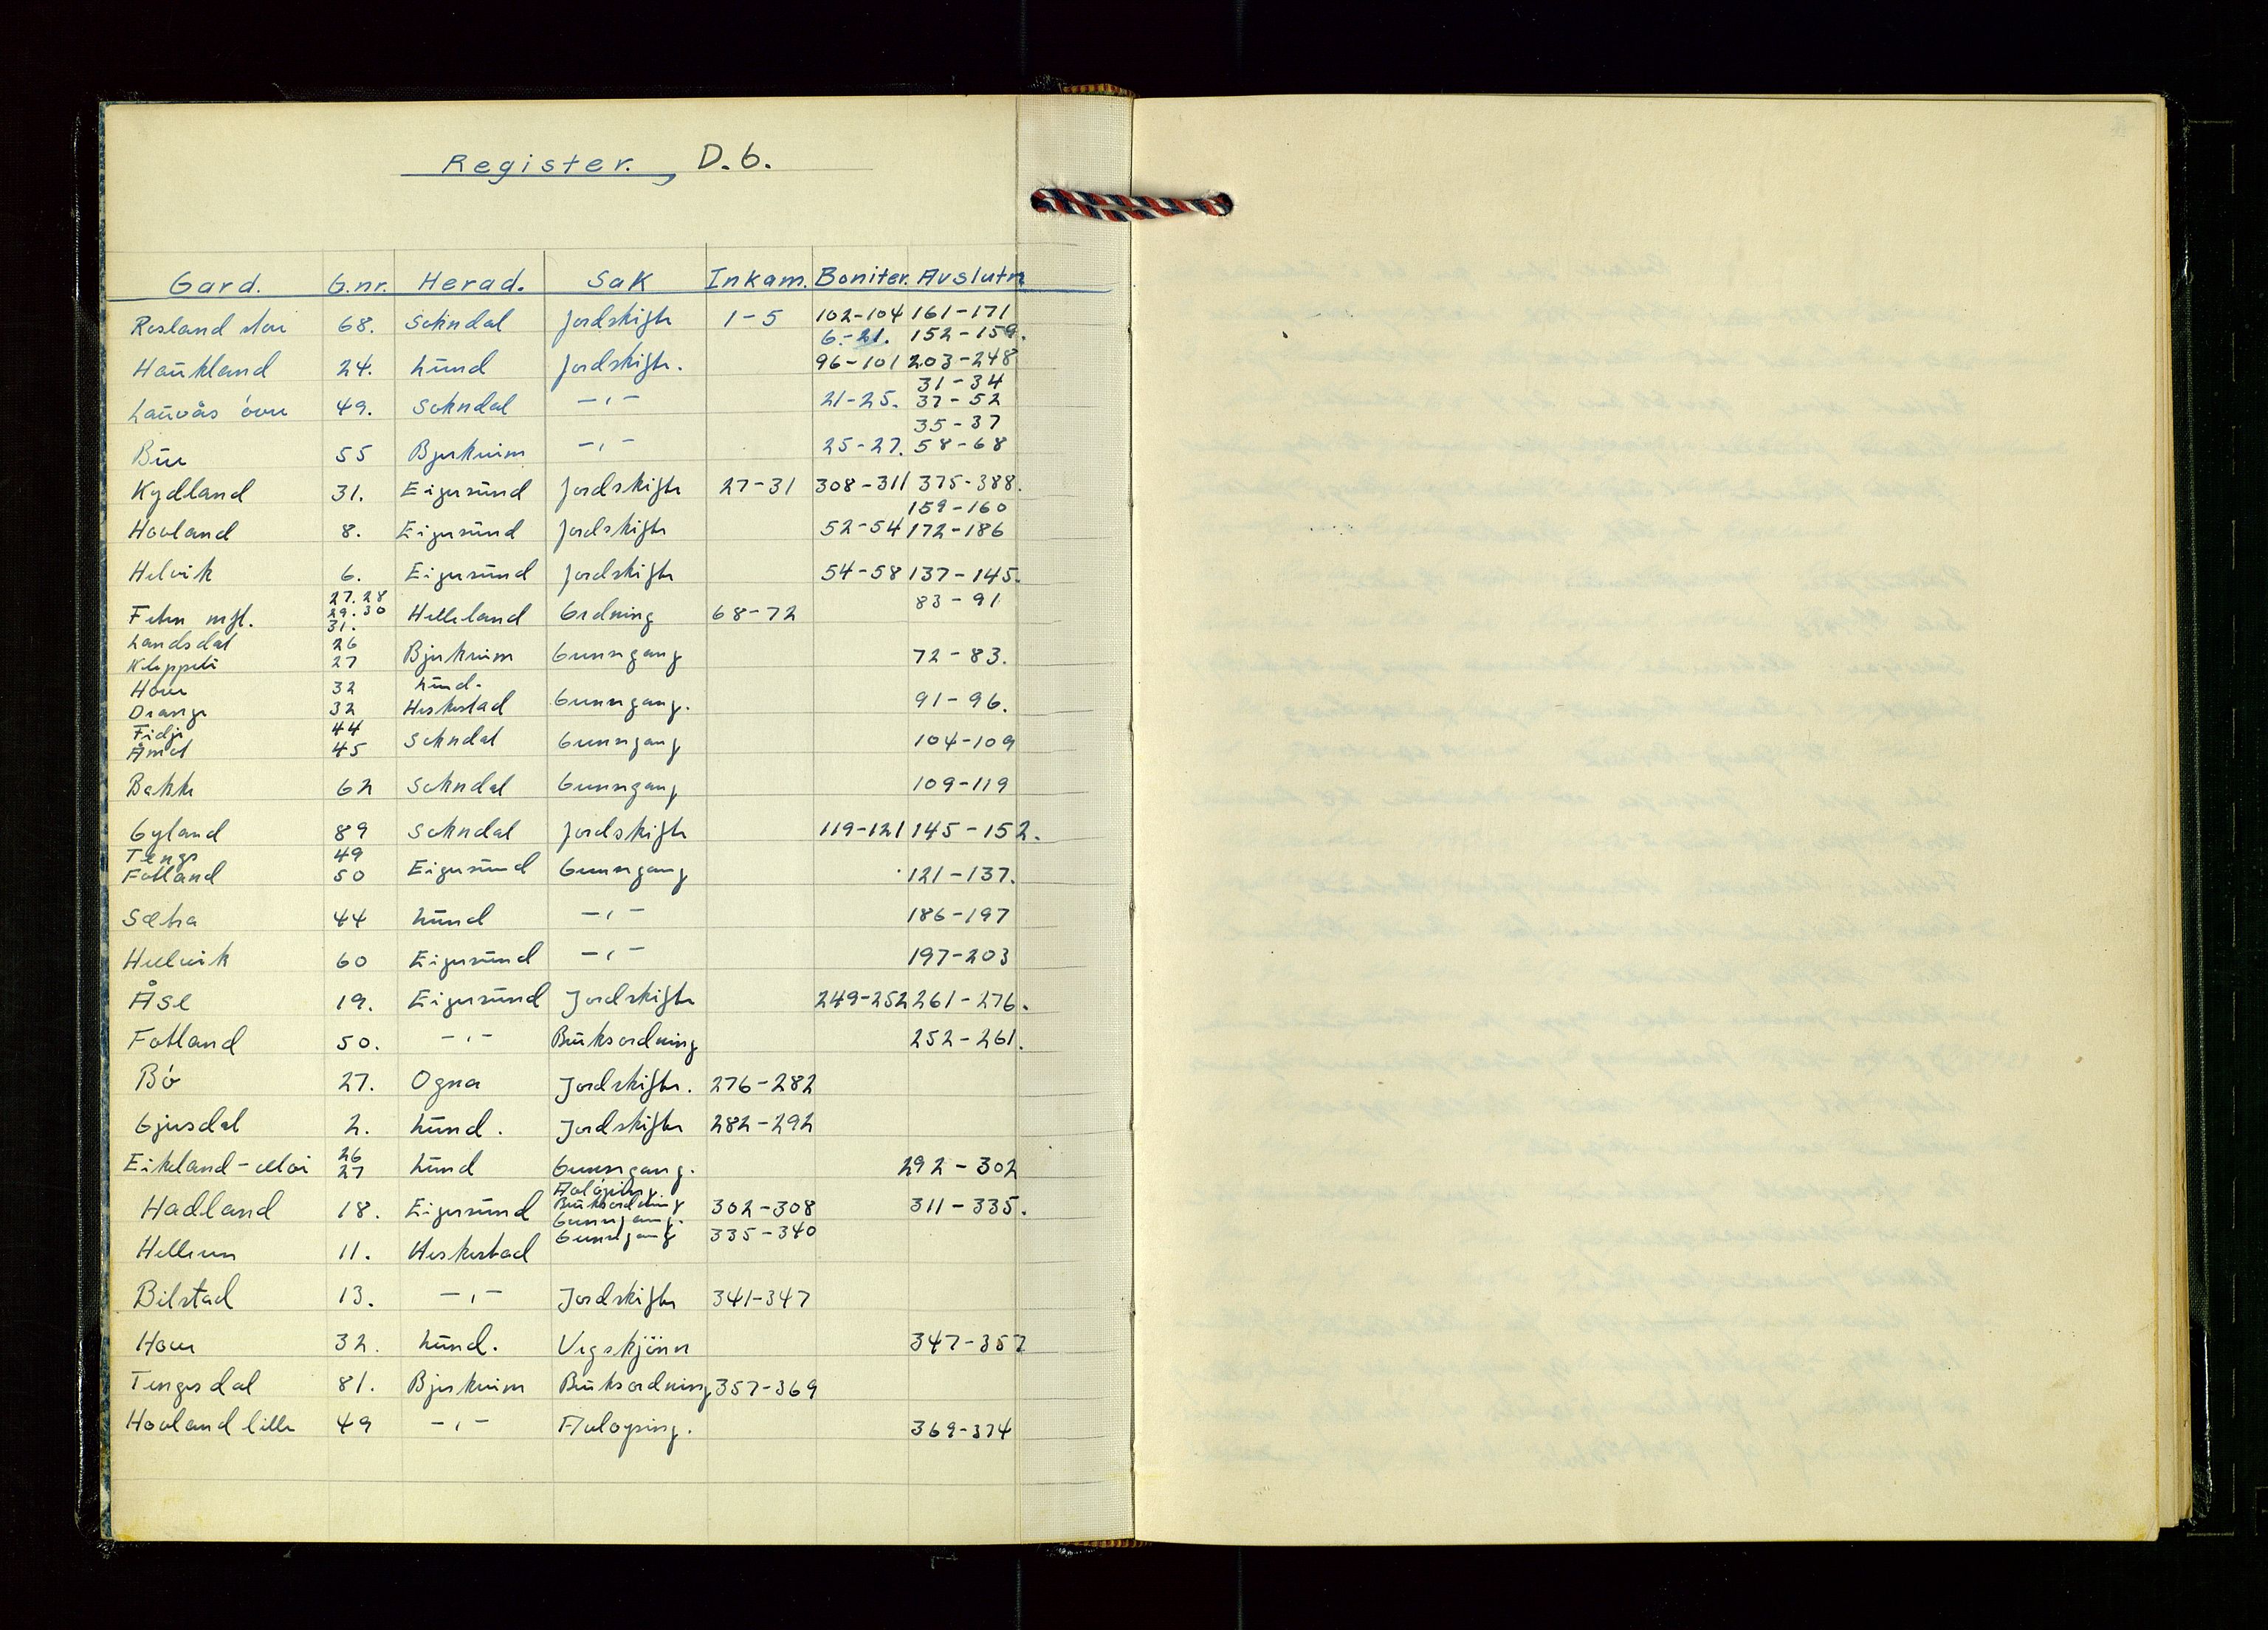 Register. D.6.
Gard. G.nr. Herad. Sak Inkam. Boniter. Avslutn
Rosland stori 68. Sokndal Jordskifte 1-5 102-104 161-171
6.-21. 152-159.
Haukland 24. Lund Jordskifte. 96-101 203-248
31-34
Lauvås övre 49. Sokndal -,- 21-25. 37-52
35-37
Bue 55 Bjerkreim -,- 25-27. 58-68
Kydland 31. Eigersund Jordskifte 27-31 308-311 375-388.
159-160
Hovland 8. Eigersund Jordskifte 52-54 172-186
Helvik 6. Eigersund Jordskifte 54-58 137-145.
27.28 83-91
Feten mfl. 29.30 Helleland Grdning 68-72
31.
Landsdal 26
Kleppeli 27 Bjerkreim Grensgang 72-83.
Hove 32 Lund.
Drange 32 Heskestad Grensgang. 91-96.
Fidje 44
Åmot 45 Sokndal Grensgang 104-109
Bakke 62 Sokndal Grensgang 109-119
Gyland 89 Sokndal Jordskifte 119-121 145-152.
Tengs 49
Fotland 50 Eigersund Grensgang 121-137.
Sætra 44 Lund -,- 186-197
Hellvik 60 Eigersund -,- 197-203
Åse 19. Eigersund Jordskifte 249-252 261-276.
Fotland 50. -,- Bruksordning 252-261.
Bö 27. Ogna Jordskifte. 276-282
Gjesdal 2. Lund. Jordskifte 282-292
26
Eikeland-Moi 27 Lund Grensgang. 292-302
Avlöysing.
Hadland 18. Eigersund Bruksordning 302-308 311-335.
Grensgang.
Grensgang 335-340
Helleren 11. Heskestad
Bilstad 13. -,- Jordskifte 341-347
Hove 32. Lund. Vegskjönn 347-357
Tengesdal 81. Bjerkreim Bruksordning 357-369
Hovland lille 49 -,- Avløysing. 369-374